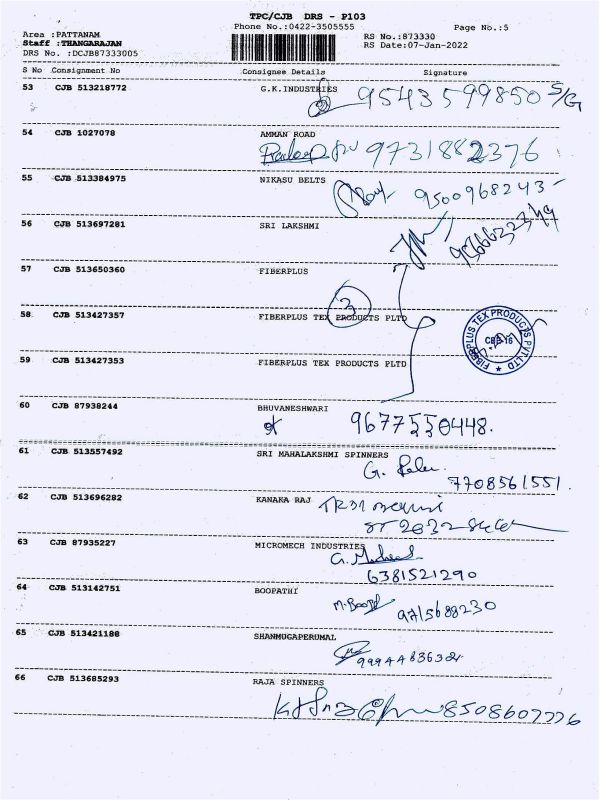 TPC/CJB DRS - P103
Phone No.:0422-3505555
Page No.:5
Area :PATTANAM
Staff :THANGARAJAN
DRS No. :DCJB87333005
RS No.:873330
RS Date:07-Jan-2022
S No Consignment No Consignee Details Signature
53 CJB 513218772 G.K.INDUSTRIES
9543599850 S/G
54 CJB 1027078 AMMAN ROAD
9731882376
55 CJB 513384975 NIKASU BELTS
9500968243
56 CJB 513697281 SRI LAKSHMI
57 CJB 513650360 FIBERPLUS
3
58 CJB 513427357 FIBERPLUS TEX PRODUCTS PLTD
FIBERPLUS TEX PRODUCTS PVT LTD
CBE-16
59 CJB 513427353 FIBERPLUS TEX PRODUCTS PLTD
60 CJB 87938244 BHUVANESHWARI
9677550448.
61 CJB 513557492 SRI MAHALAKSHMI SPINNERS
7708561551.
62 CJB 513696282 KANAKA RAJ
63 CJB 87935227 MICROMECH INDUSTRIES
6381521290
64 CJB 513142751 BOOPATHI
M.Boopa
9715688230
65 CJB 513421188 SHANMUGAPERUMAL
66 CJB 513685293 RAJA SPINNERS